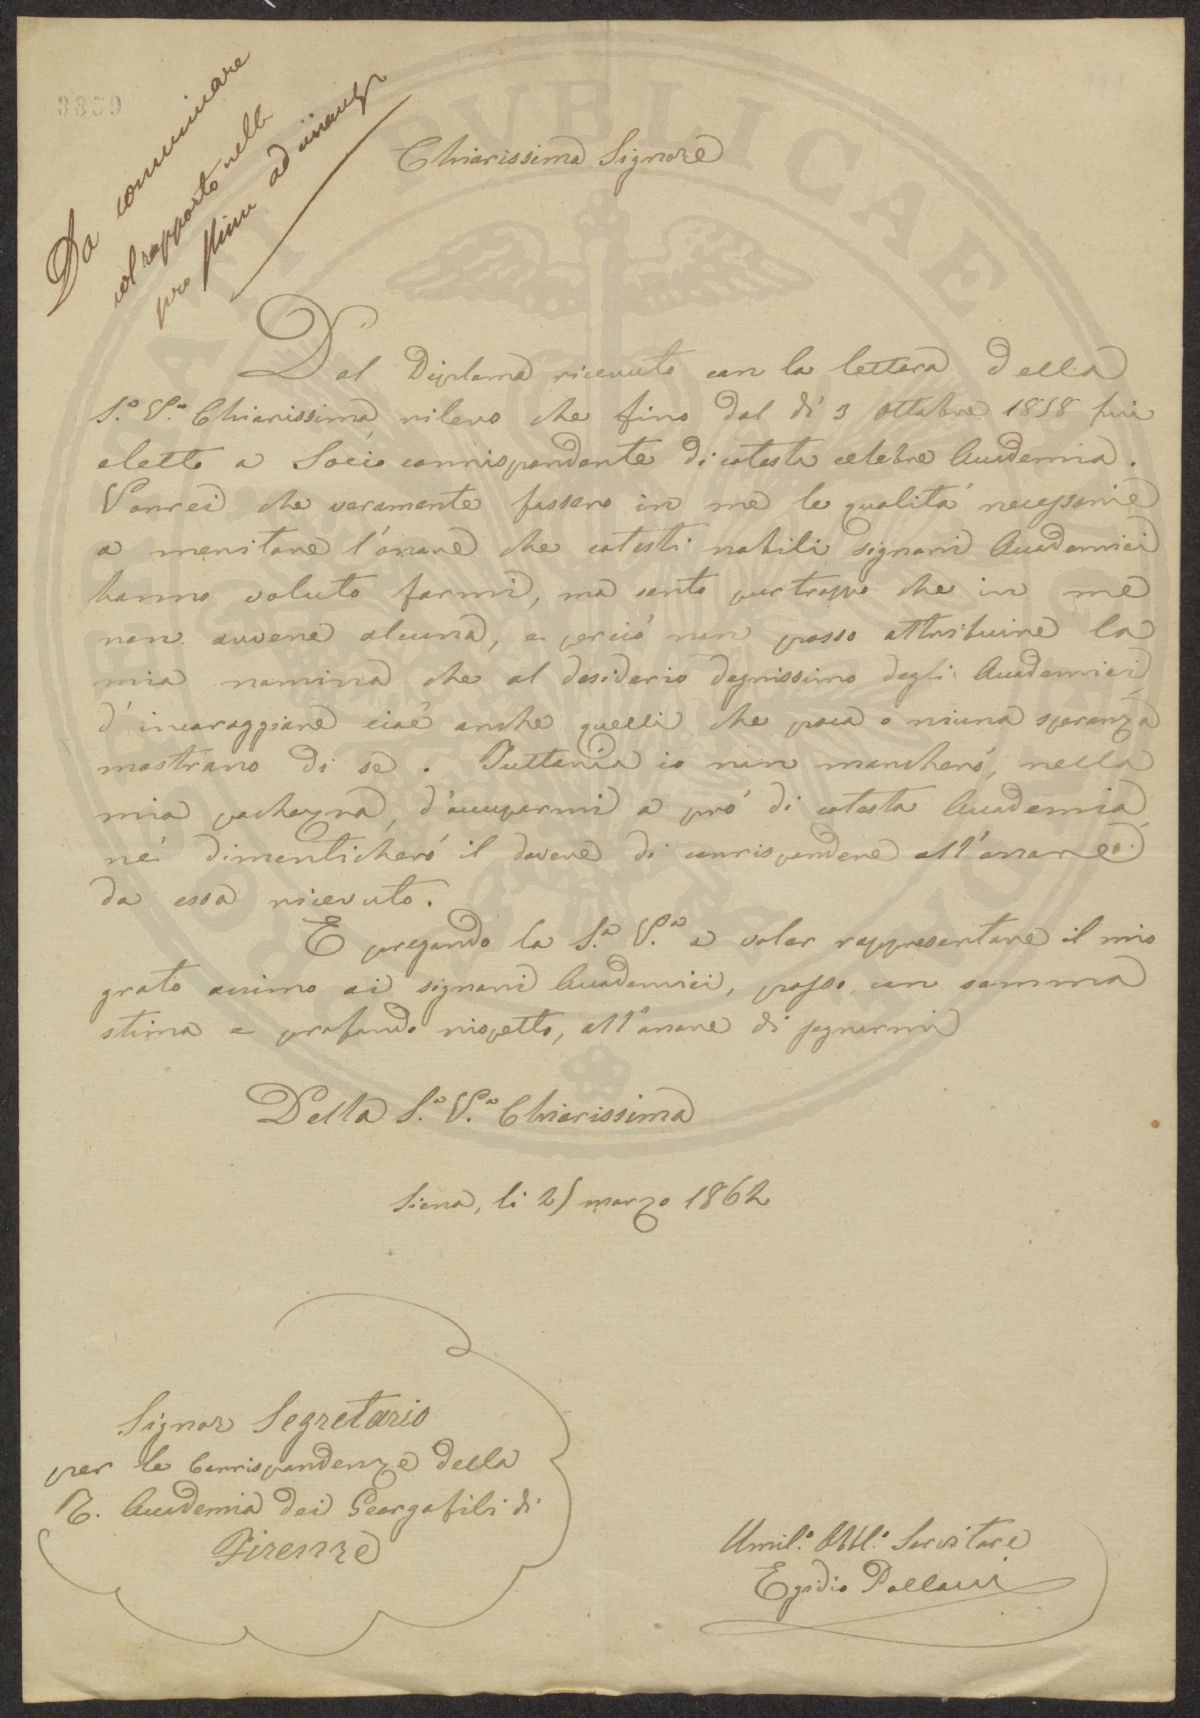 3859
Da comunicare
col rapporto nella
prossima adunanza
Chiarissimo Signore
Dal Diploma ricevuto con la lettera della
S.a V.a Chiarissima rilevo che fino dal dì 3 Ottobre 1858 fui
eletto a Socio corrispondente di cotesta celebre Accademia.
Vorrei che veramente fossero in me le qualità necessarie
a meritare l'onore che cotesti nobili signori Accademici
hanno voluto farmi, ma sento purtroppo che in me
non avvene alcuna, e perciò non posso attribuire la
mia nomina che al desiderio degnissimo degli Accademici
d'incoraggiare cioè anche quelli che poca o niuna speranza
mostrano di sè. Tuttavia io non mancherò, nella
mia pochezza, d'occuparmi a prò di cotesta Accademia,
nè dimenticherò il dovere di corrispondere all'onore
da essa ricevuto.
E pregando la S.a V.a a voler rappresentare il mio
grato animo ai signori Accademici, passo, con somma
stima e profondo rispetto, all'onore di segnarmi
Della S.a V.a Chiarissima
Siena, li 25 marzo 1862
Signor Segretario
per le Corrispondenze della
R. Accademia dei Georgofili di
Firenze
Umil.o Obbl.o Servitore
Egidio Pollacci
PUBLICAE